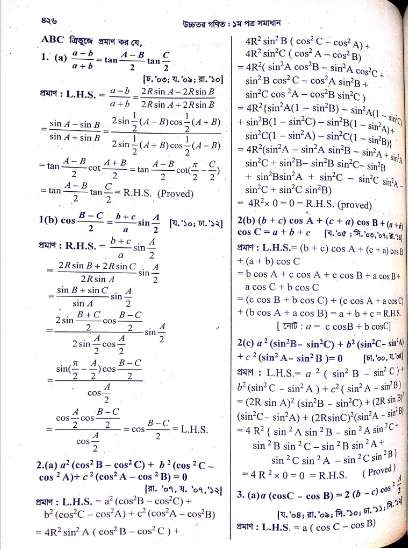 ৪২৬
উচ্চতর গণিত : ১ম পত্র সমাধান
ABC ত্রিভুজে প্রমাণ কর যে,
1. (a) (a − b)/(a + b) = tan (A − B)/2 tan C/2
[চ.'০৩; য.'০৯; রা.'১০]
প্রমাণ : L.H.S. = (a − b)/(a + b) = (2R sin A − 2R sin B)/(2R sin A + 2R sin B)
= (sin A − sin B)/(sin A + sin B) = (2 sin ½(A − B) cos ½(A + B))/(2 sin ½(A + B) cos ½(A − B))
= tan (A − B)/2 cot (A + B)/2 = tan (A − B)/2 cot(π/2 − C/2)
= tan (A − B)/2 tan C/2 = R.H.S. (Proved)
1(b) cos (B − C)/2 = (b + c)/a sin A/2 [য.'১০; ঢা.'১২]
প্রমাণ : R.H.S. = (b + c)/a sin A/2
= (2R sin B + 2R sin C)/(2R sin A) sin A/2
= (sin B + sin C)/(sin A) sin A/2
= (2 sin (B + C)/2 cos (B − C)/2)/(2 sin A/2 cos A/2) sin A/2
= (sin(π/2 − A/2) cos (B − C)/2)/(cos A/2)
= (cos A/2 cos (B − C)/2)/(cos A/2) = cos (B − C)/2 = L.H.S.
2.(a) a² (cos² B − cos² C) + b² (cos² C −
cos² A) + c² (cos² A − cos² B) = 0
[রা. '০৭, য. '০৭,'১২]
প্রমাণ : L.H.S. = a² (cos²B − cos²C) +
b² (cos²C − cos²A) + c² (cos²A − cos²B)
= 4R² sin² A ( cos² B − cos² C ) +
4R² sin² B ( cos² C − cos² A ) +
4R² sin²C ( cos² A − cos² B)
= 4R²( sin²A cos²B − sin²A cos²C +
sin² B cos² C − cos²A sin²B +
sin²C cos²A − cos²B sin²C )
= 4R² {sin²A (1 − sin²B) − sin²A(1 − sin²C)
+ sin²B(1 − sin²C) − sin²B(1 − sin²A) +
sin²C(1 − sin²A) − sin²C(1 − sin²B)}
= 4R²(sin²A − sin²A sin²B − sin²A + sin²A
sin²C + sin²B− sin²B sin²C− sin²B
+ sin²B sin²A + sin²C − sin²C sin²A −
sin²C + sin²C sin²B)
= 4R² × 0 = 0 = R.H.S. (proved)
2(b) (b + c) cos A + (c + a) cos B + (a + b)
cos C = a + b + c
প্রমাণ : L.H.S.= (b + c) cos A + (c + a) cos B
+ (a + b) cos C
= b cos A + c cos A + c cos B + a cos B +
a cos C + b cos C
= (c cos B + b cos C) + (c cos A + a cos C)
+ (b cos A + a cos B) = a + b + c = R.H.S.
[ নোট : a = c cosB + b cosC]
2(c) a² (sin²B− sin²C) + b² (sin²C− sin²A)
+ c² (sin² A− sin² B ) = 0
প্রমাণ : L.H.S.= a² ( sin² B − sin² C ) +
b² (sin² C − sin² A ) + c² ( sin² A − sin² B )
= (2R sin A)² (sin²B − sin²C) + (2R sin B)²
(sin²C− sin²A) + (2RsinC)²(sin²A − sin²B)
= 4 R² { sin² A sin² B − sin² A sin² C +
sin² B sin² C − sin² B sin² A +
sin² C sin² A − sin² C sin² B }
= 4 R² × 0 = 0 = R.H.S. ( Proved )
3. (a) a (cosC − cos B) = 2 (b − c) cos² A/2
প্রমাণ : L.H.S. = a ( cos C − cos B)